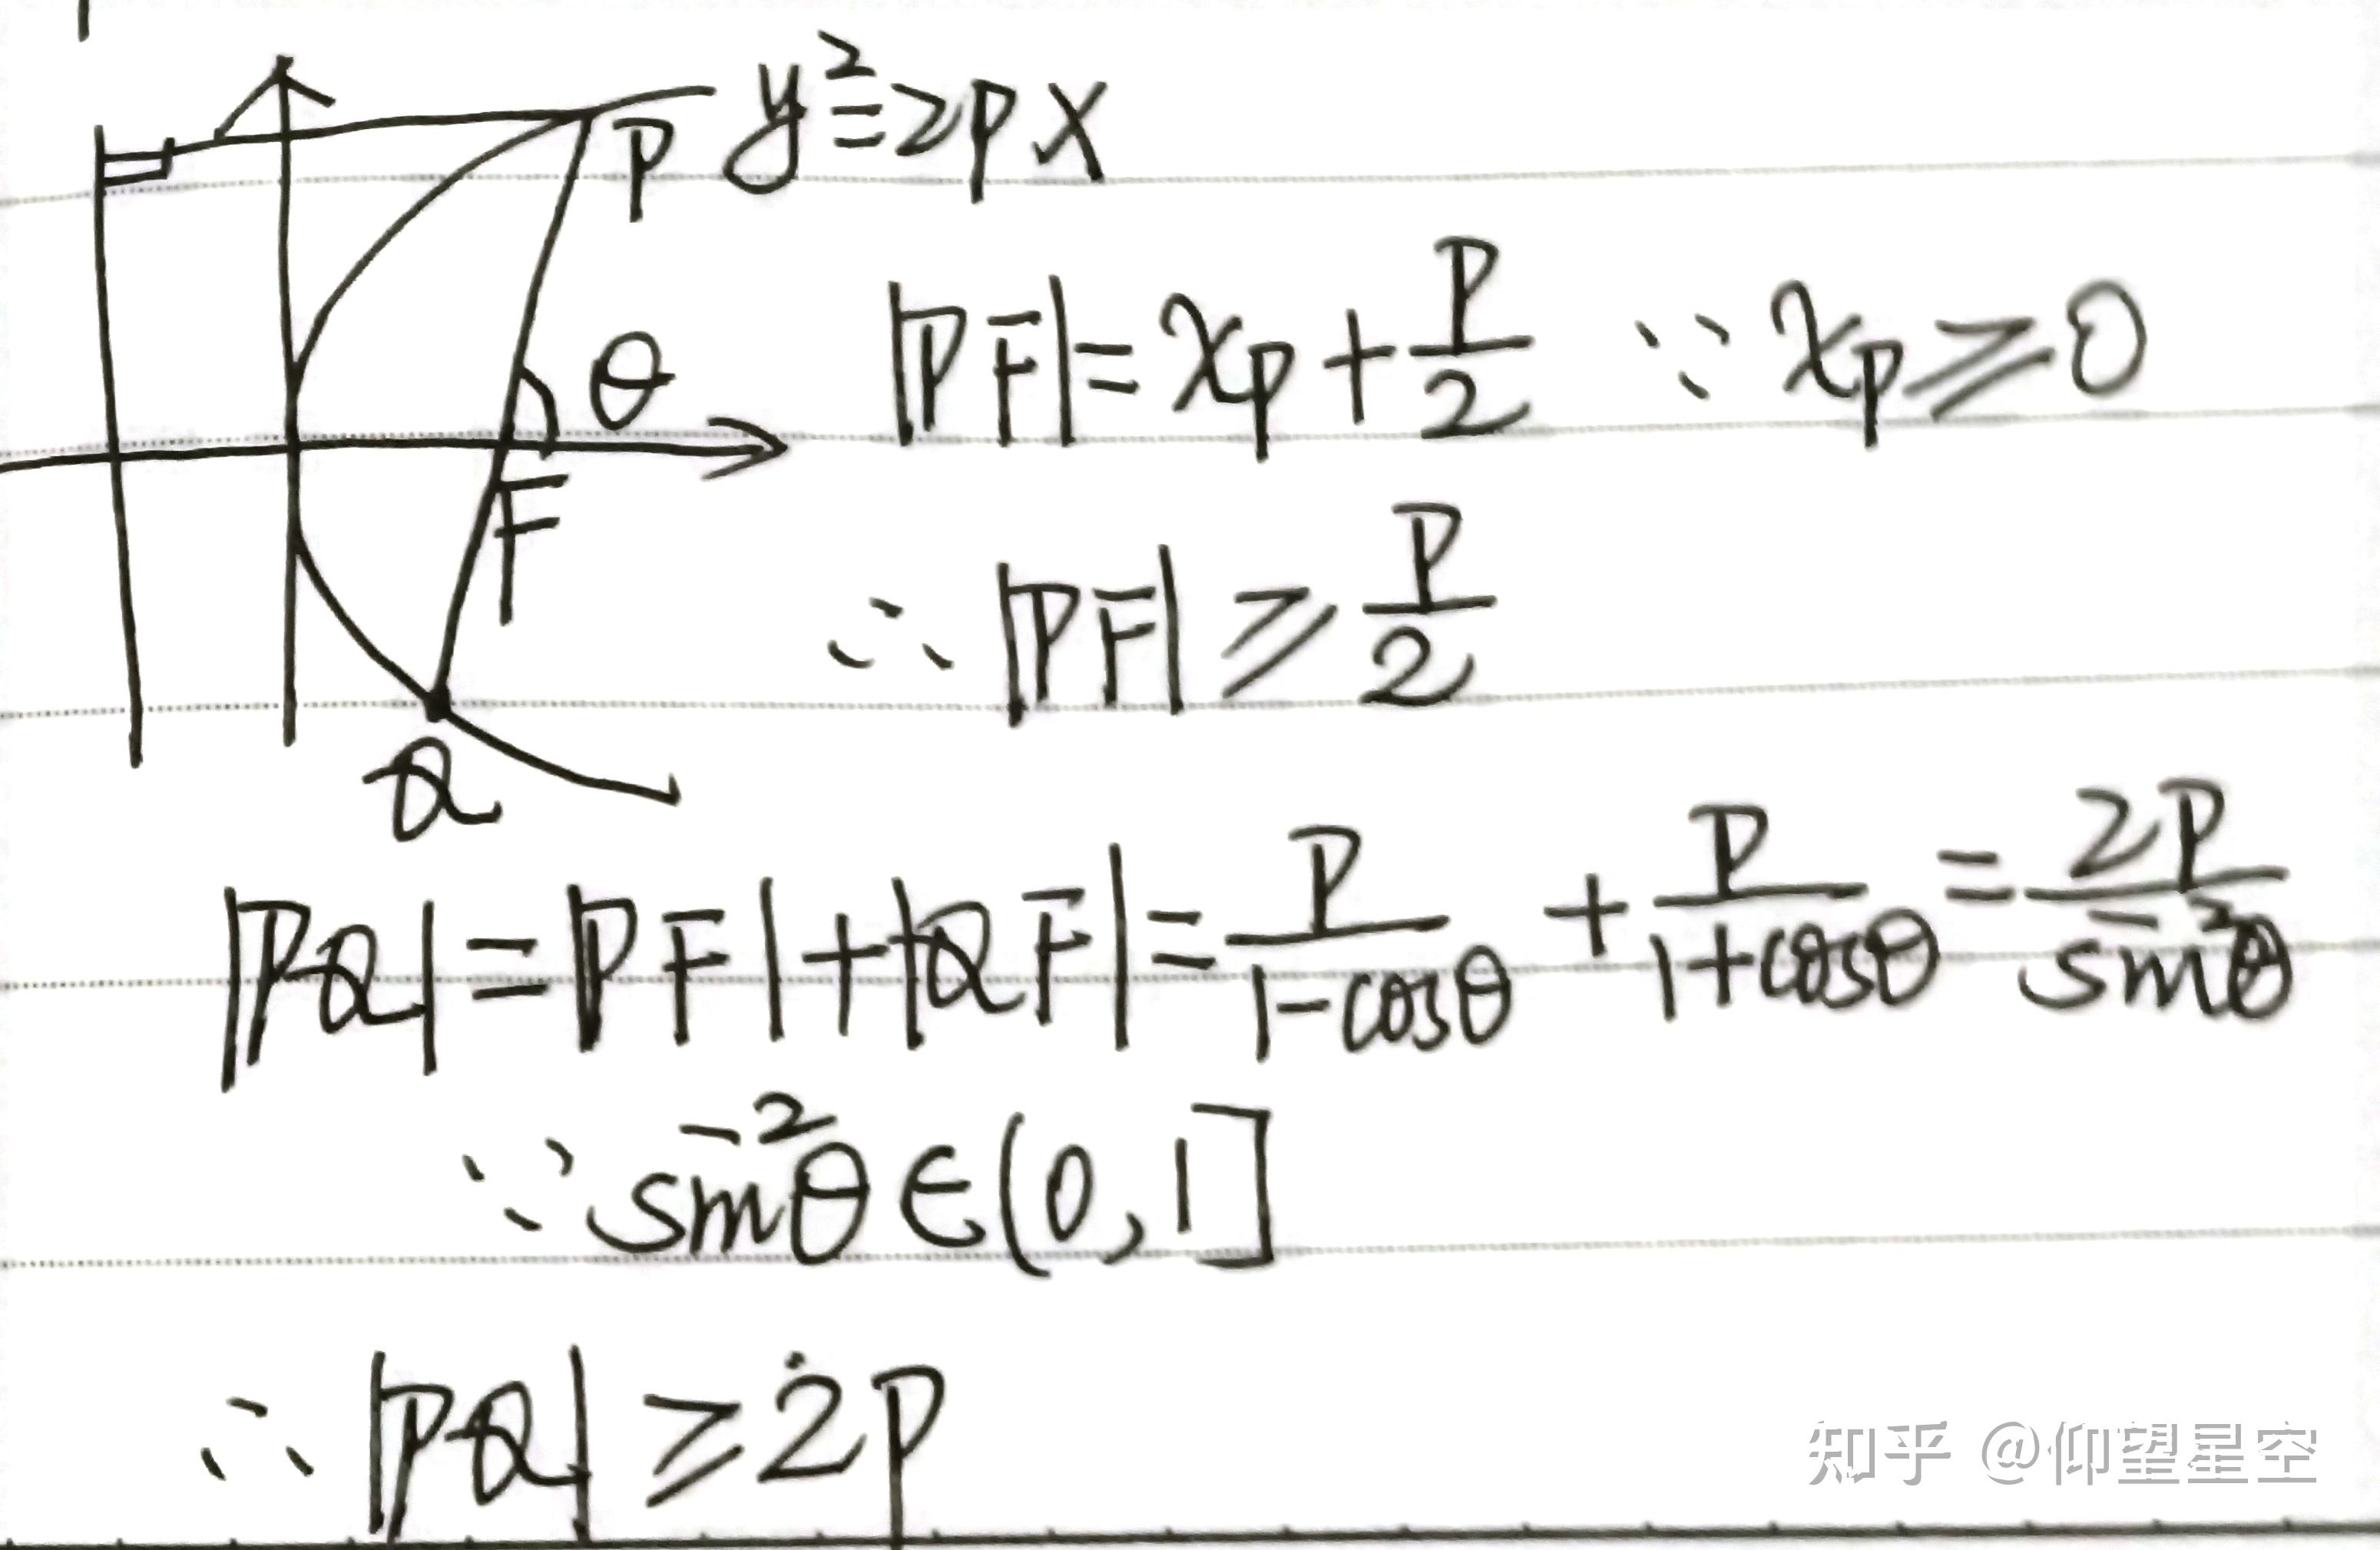 P y²=2px
θ
F
Q
|PF|=x_P+P/2 ∵ x_P⩾0
∴ |PF|⩾P/2
|PQ|=|PF|+|QF|=P/(1-cosθ)+P/(1+cosθ)=2P/sin²θ
∵ sin²θ∈(0,1]
∴ |PQ|≥2P
知乎 @仰望星空